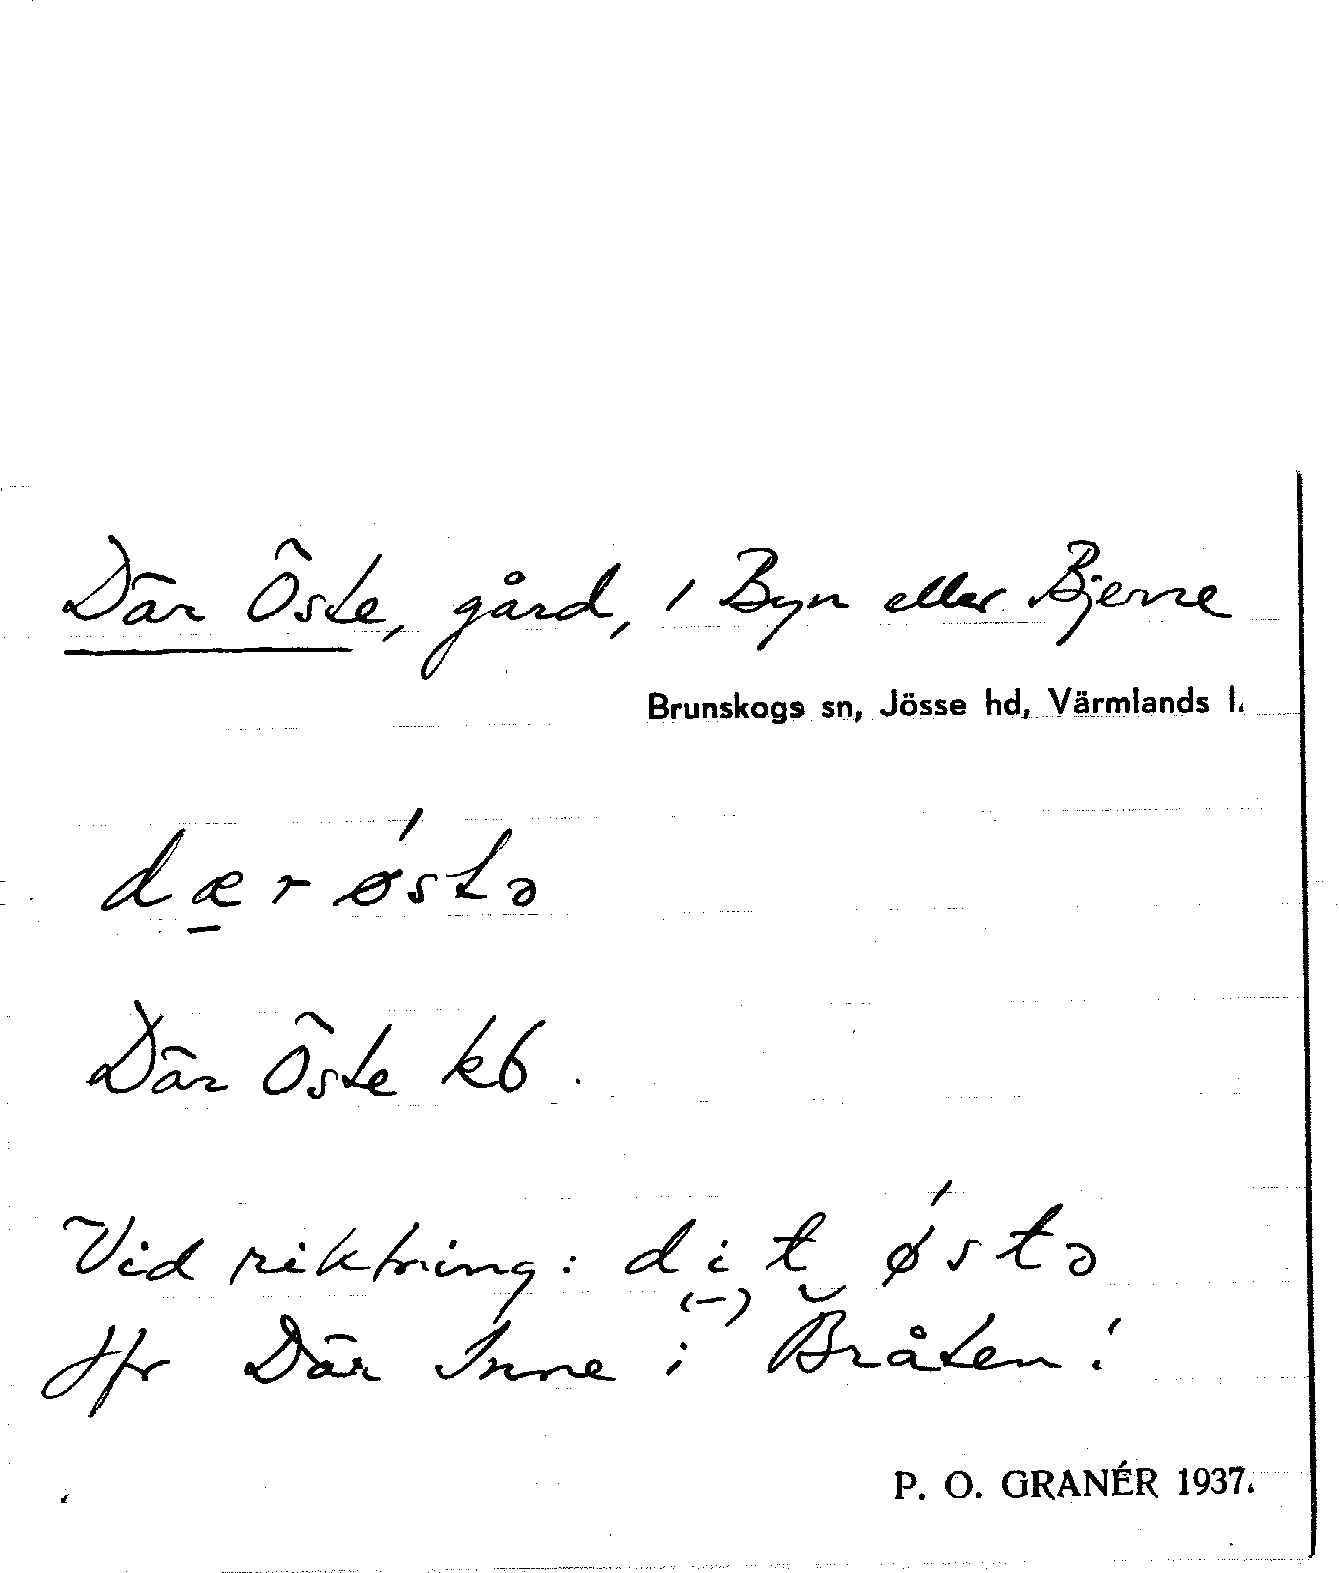 Där Öste, gård, i Byn eller Bjerne
Brunskogs sn, Jösse hd, Värmlands l.
dær østə
Där Öste kb.
Vid riktning: dit østə
(–)
Jfr Där Inne i Bråten!
P. O. GRANÉR 1937.